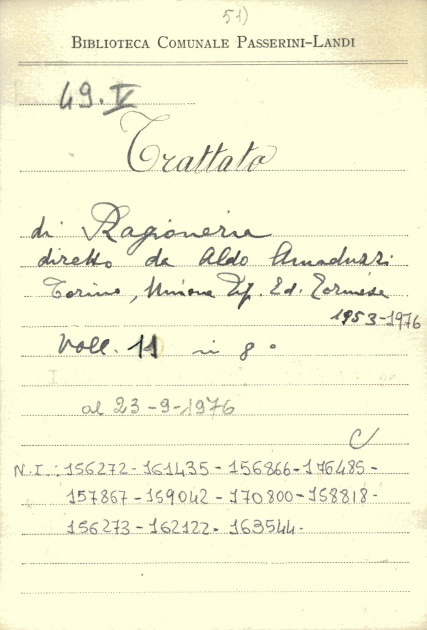 51)
BIBLIOTECA COMUNALE PASSERINI-LANDI
49. V
Trattato
di Ragioneria
diretto da Aldo Amaduzzi
Torino, Unione Tip. Ed. Torinese
1953-1976
Voll. 11 in 8°
al 23-9-1976
N.I.: 156272-161435-156866-176485-
157867-159042-170800-158818-
156273-162122-163544-